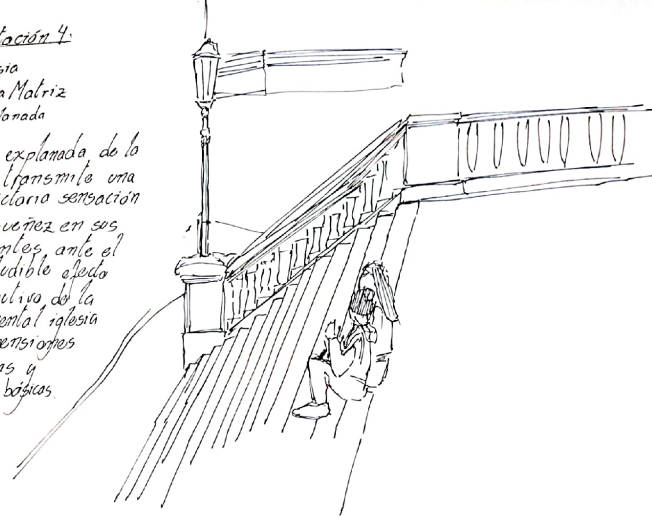 tación 4:
sia
a Matriz
lanada
explanada de la
transmite una
ctoria sensación
queñez en sus
ntes ante el
ludible efecto
uctivo de la
mental iglesia
ensiones
as y
básicas.